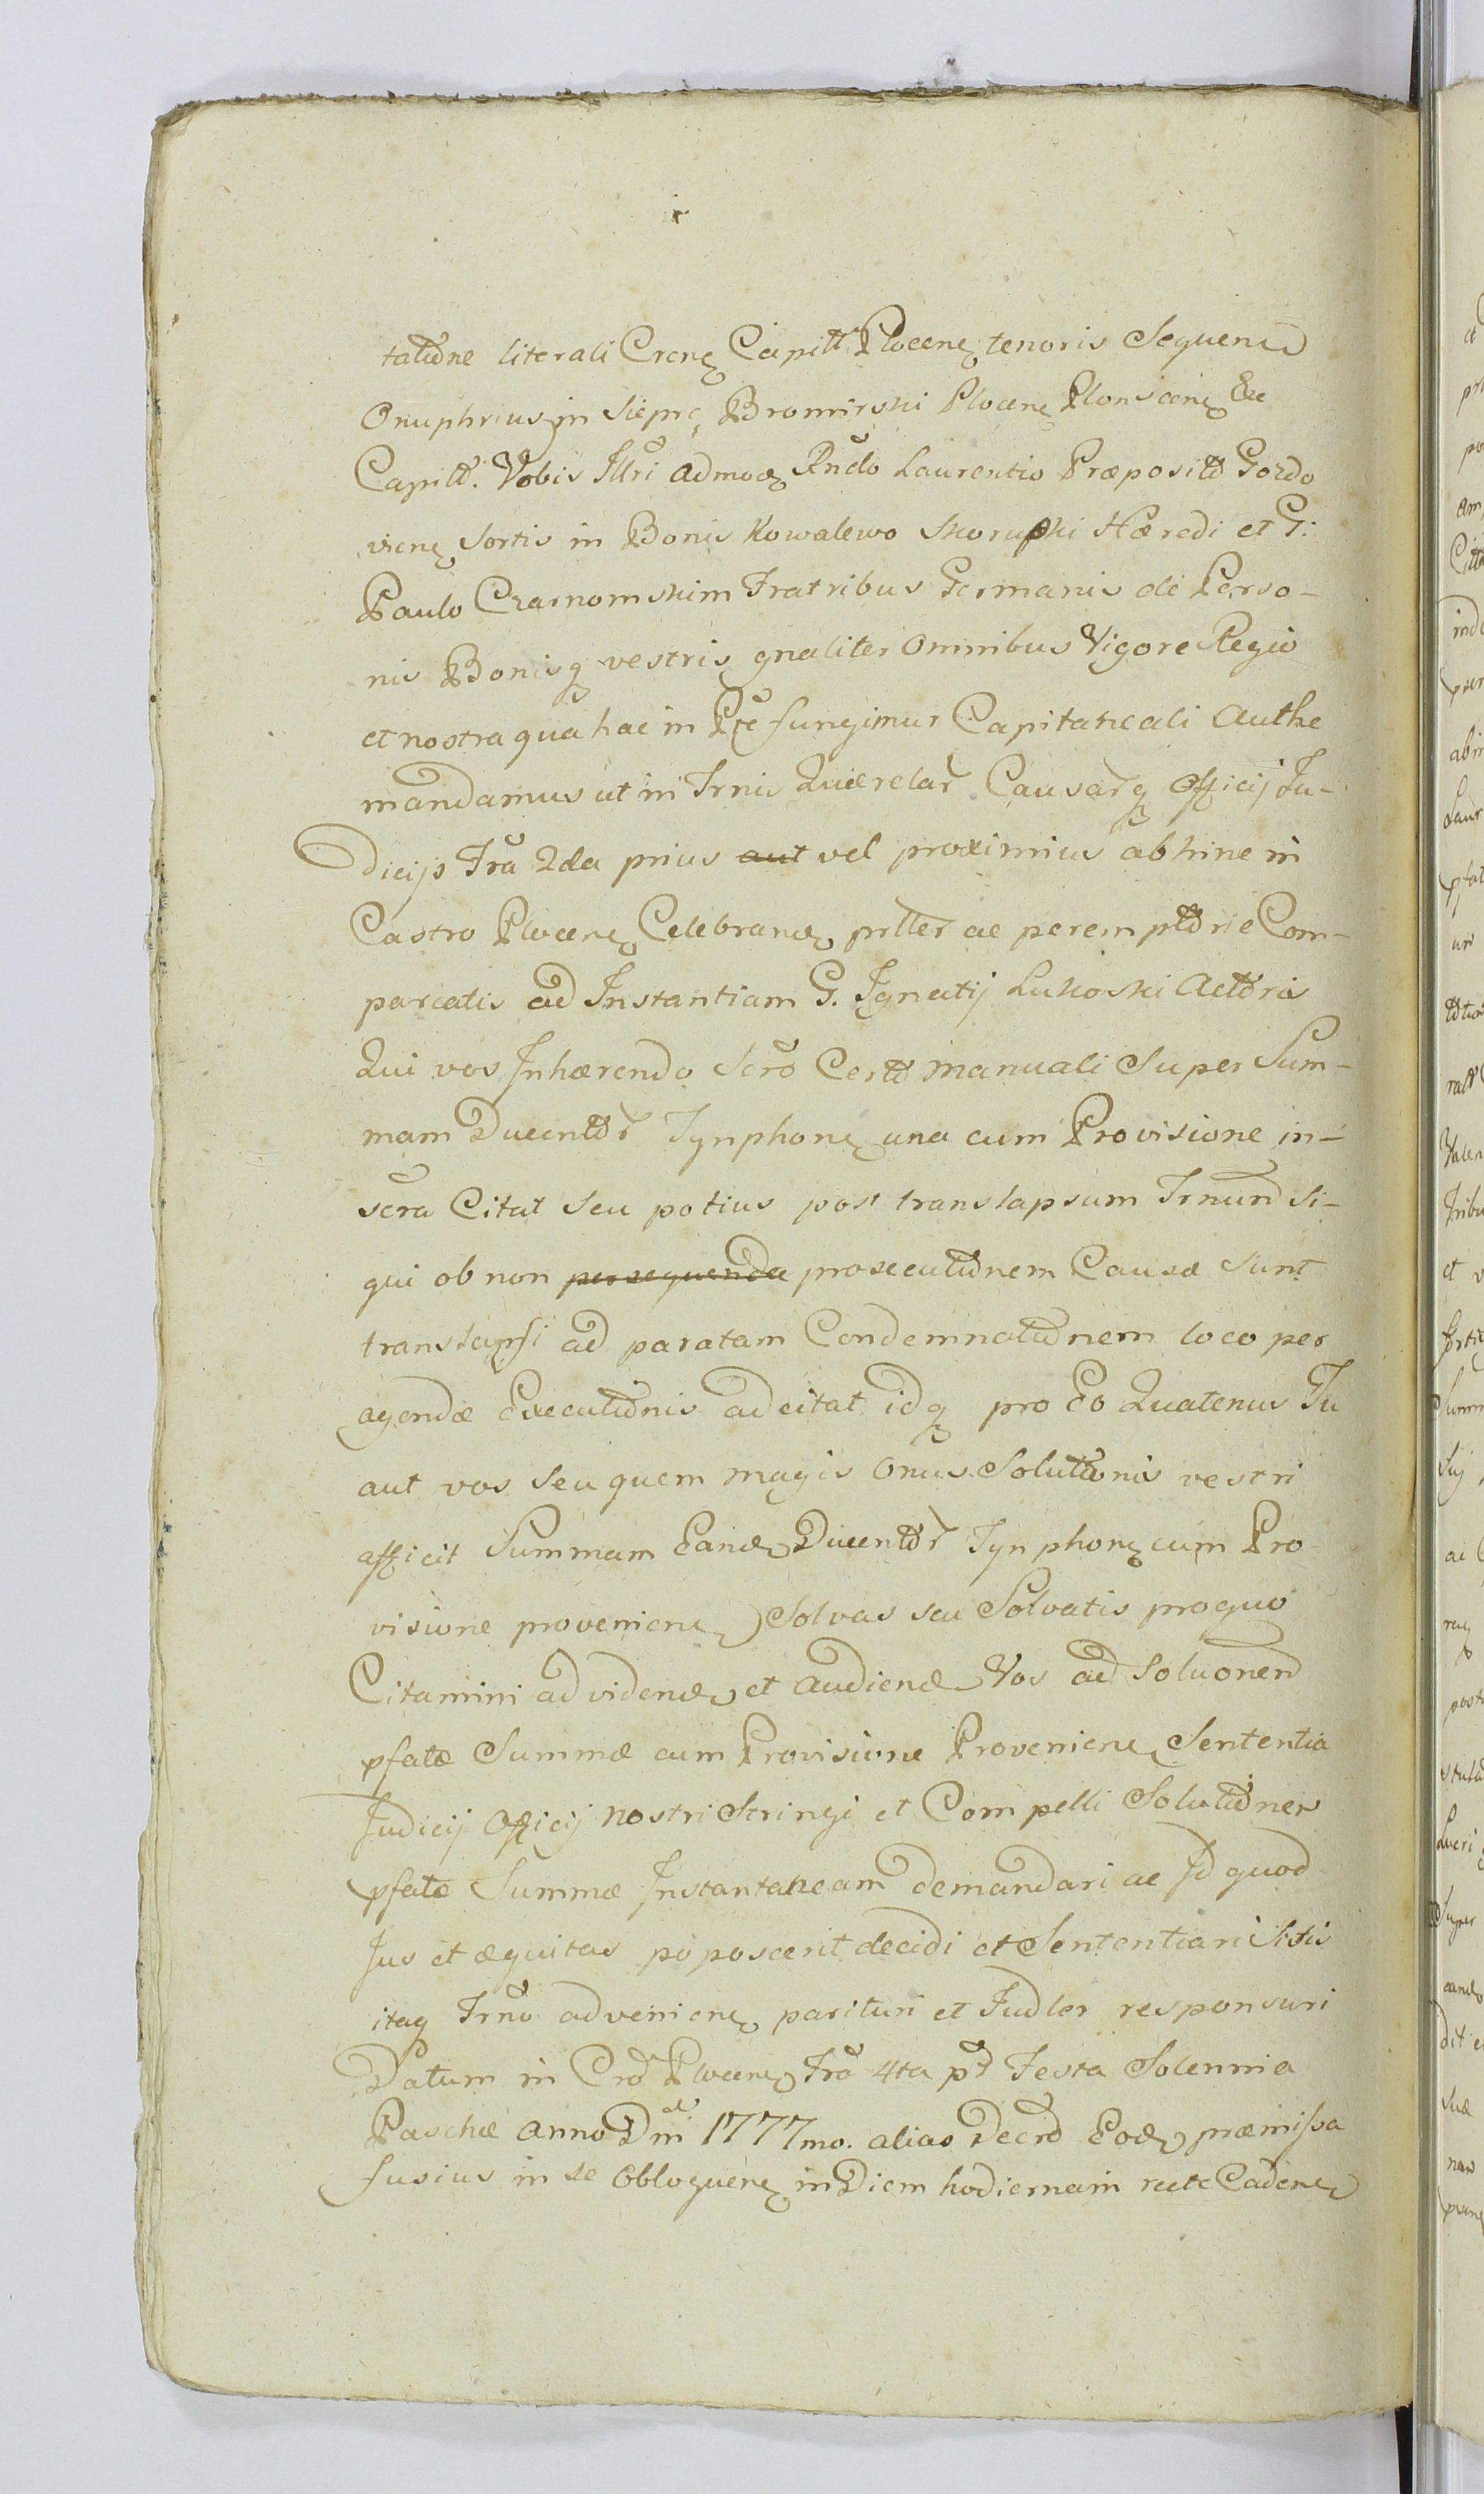 taõne literali Crenę Capitt Plocenę tenoris Sequenę
Onuphrius in Siepc Bromirski Plocenę Plonscenę Etc
Capitt. Vobis Illri Admodę Rndo Laurentio Præposito Gozdo
vienę Sortis in Bonis Kowalewo Skorupki Hæredi et G:
Paulo Czarnomskim Fratribus Germanis de Perso-
nis Bonisq vestris gnaliter omnibus Vigore Regia
et nostra qua hac in Pte fungimur Capitaneali Authe
mandamus ut in Trnis Quærelar Causarq Officij Ju-
dicijs Fra 2da prius aut vel proximius abhinc in
Castro Plocenę Celebrandę prtter ac peremptorie Com-
pareatis ad Instantiam G. Ignatij Lukoski Actoris
Qui vos Inhærendo Scro Certo manuali Super Sum-
mam Ducentor Tynphonę una cum Provisione in-
scra Citat Seu potius post translapsum Trnum si-
qui ob non persequenda prosecutionem Causæ Sunt
translapsi ad paratam Condemnationem loco per
agendæ Executionis adcitat idq pro Eo Quatenus Tu
aut vos Seu quem magis Onus Solutionis vestri
afficit Summam Eandę Ducentor Tynphonę cum Pro
visione provenienę Solvas seu Solvatis pro quo
Citamini ad videndę et Audiendę Vos ad Soluonem
pfatæ Summæ cum Provisione Provenienę Sententia
Judicij Officij nostri Stringi et Compelli Solutionem
pfatæ Summæ Instantaneam demandari ac Id quod
Jus et æquitas poposcerit decidi et Sententiari Sitis
itaq Trno advenienę parituri et Judler responsuri
Datum in Cro Plocenę Fra 4ta pt Festa Solennia
Paschæ Anno Dni 1777mo. alias Decro Eodę præmissa
fusius in se Obloquenę in Diem hodiernam recte Cadenę